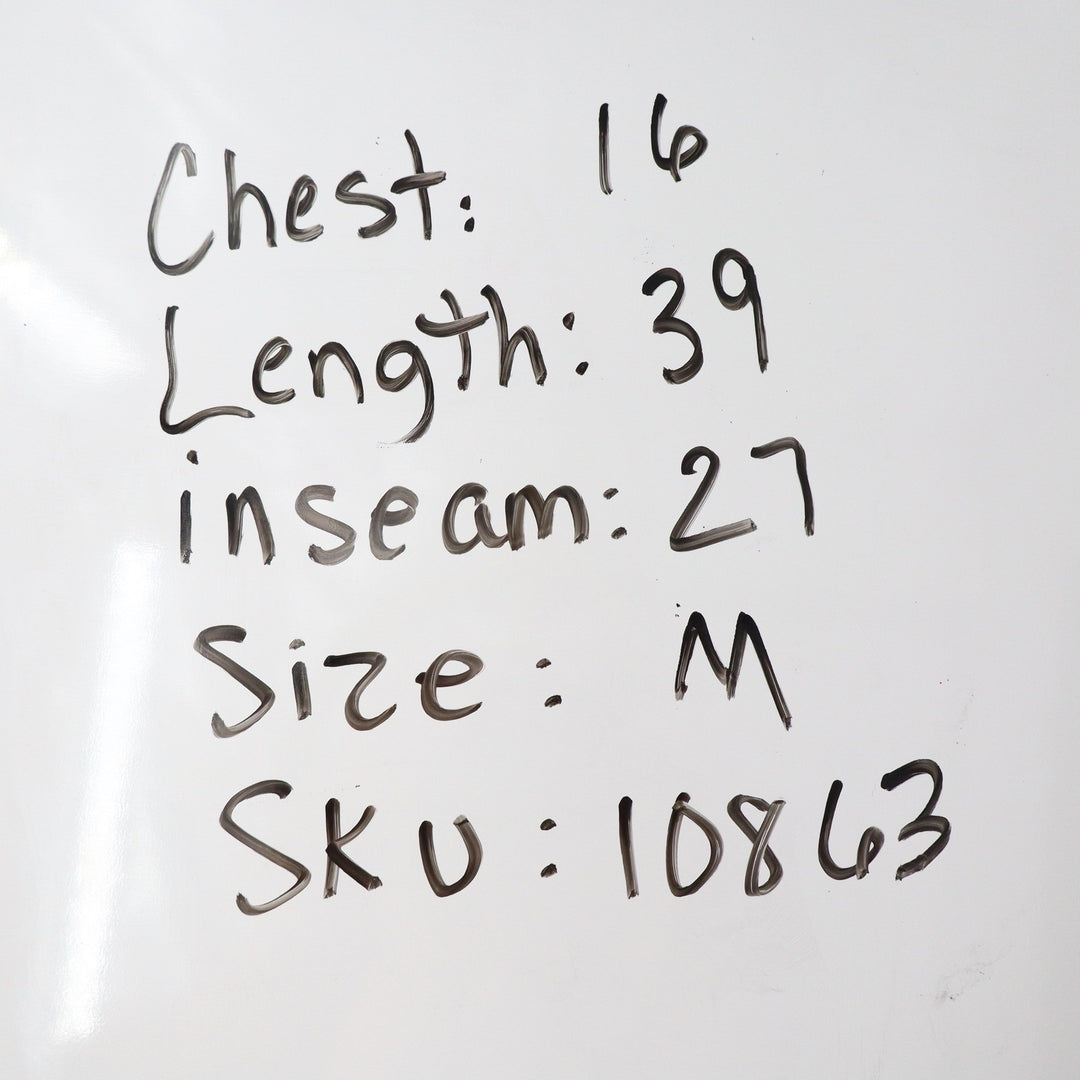 Chest: 16
Length: 39
inseam: 27
Size: M
SKU: 10863